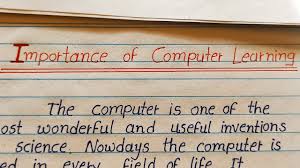 Importance of Computer Learning
The computer is one of the
ost wonderful and useful inventions
science. Nowdays the computer is
ed in every field of life. It